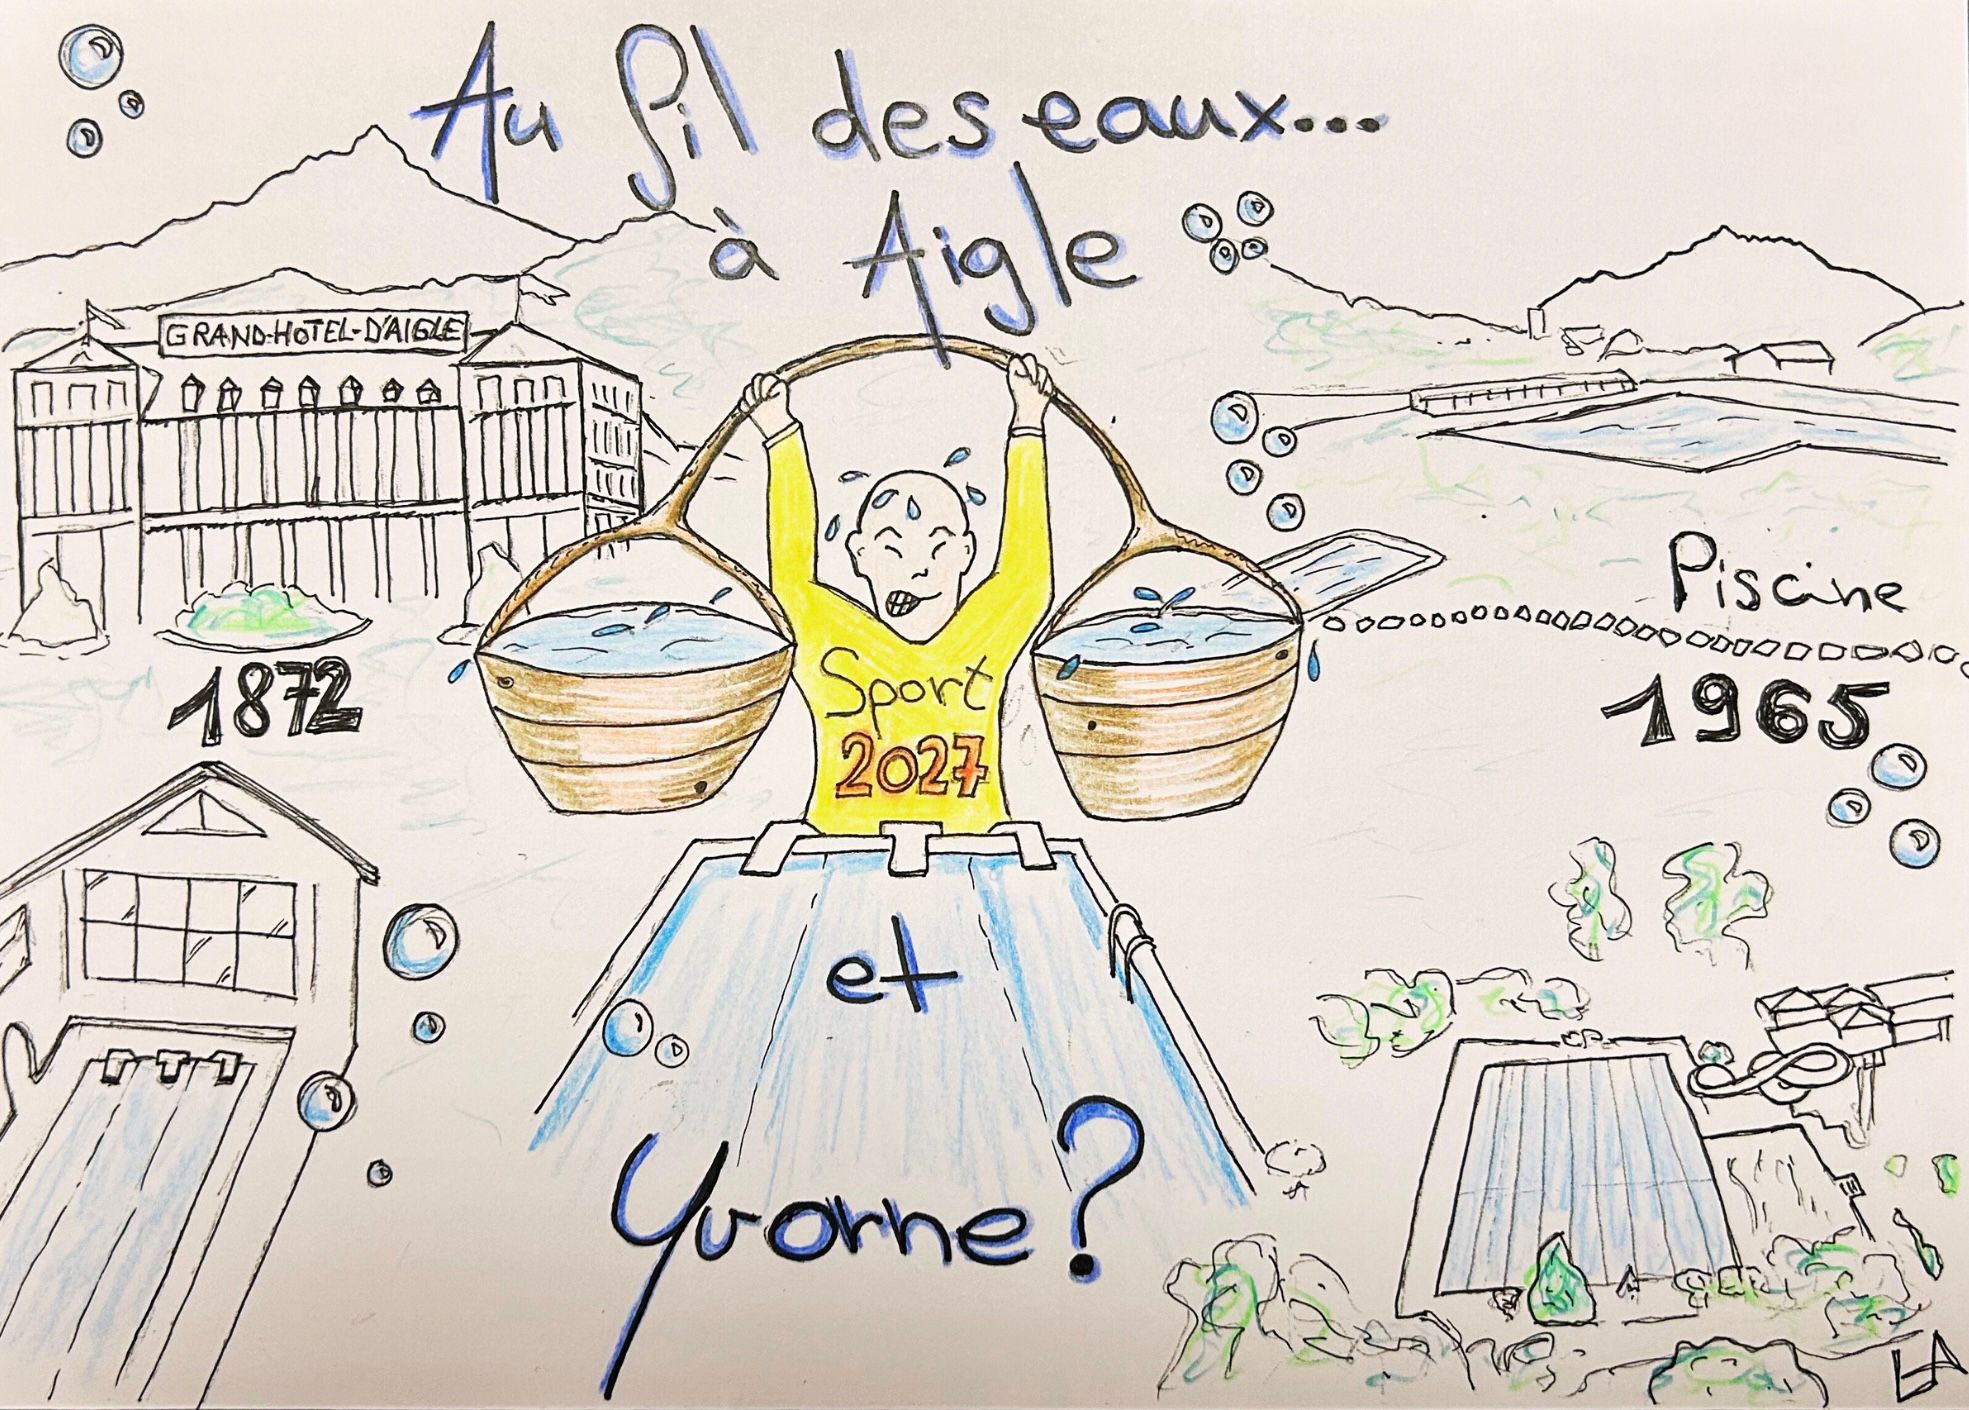 Au fil des eaux...
à Aigle
GRAND-HOTEL-D'AIGLE
1872
Sport
2027
Piscine
1965
et
Yvorne?
LA